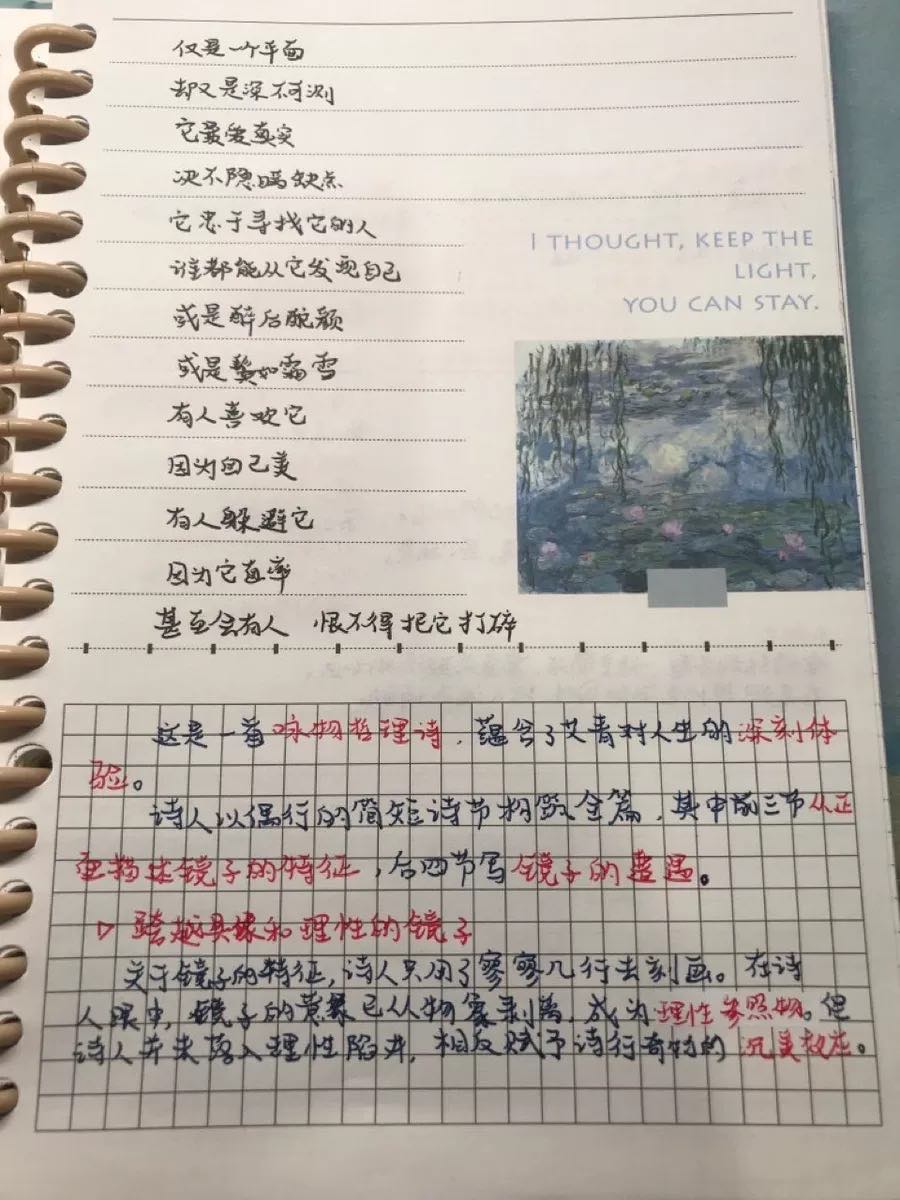 仅是一个平面
却又是深不可测
它最爱真实
决不隐瞒缺点
它忠于寻找它的人
谁都能从它发现自己
或是醉后酡颜
或是鬓如霜雪
有人喜欢它
因为自己美
有人躲避它
因为它直率
甚至会有人 恨不得把它打碎
I THOUGHT, KEEP THE
LIGHT,
YOU CAN STAY.
这是一首咏物哲理诗,蕴含了艾青对人生的深刻体
验。
诗人以偶行的简短诗节构筑全篇,其中前三节从正
面描述镜子的特征,后四节写镜子的遭遇。
▷ 跨越具象和理性的镜子
关于镜子的特征,诗人只用了寥寥几行去刻画。在诗
人眼中,镜子的已从物象剥离,成为理性参照物。但
诗人并未落入理性陷井,相反赋予诗行奇特的沉美